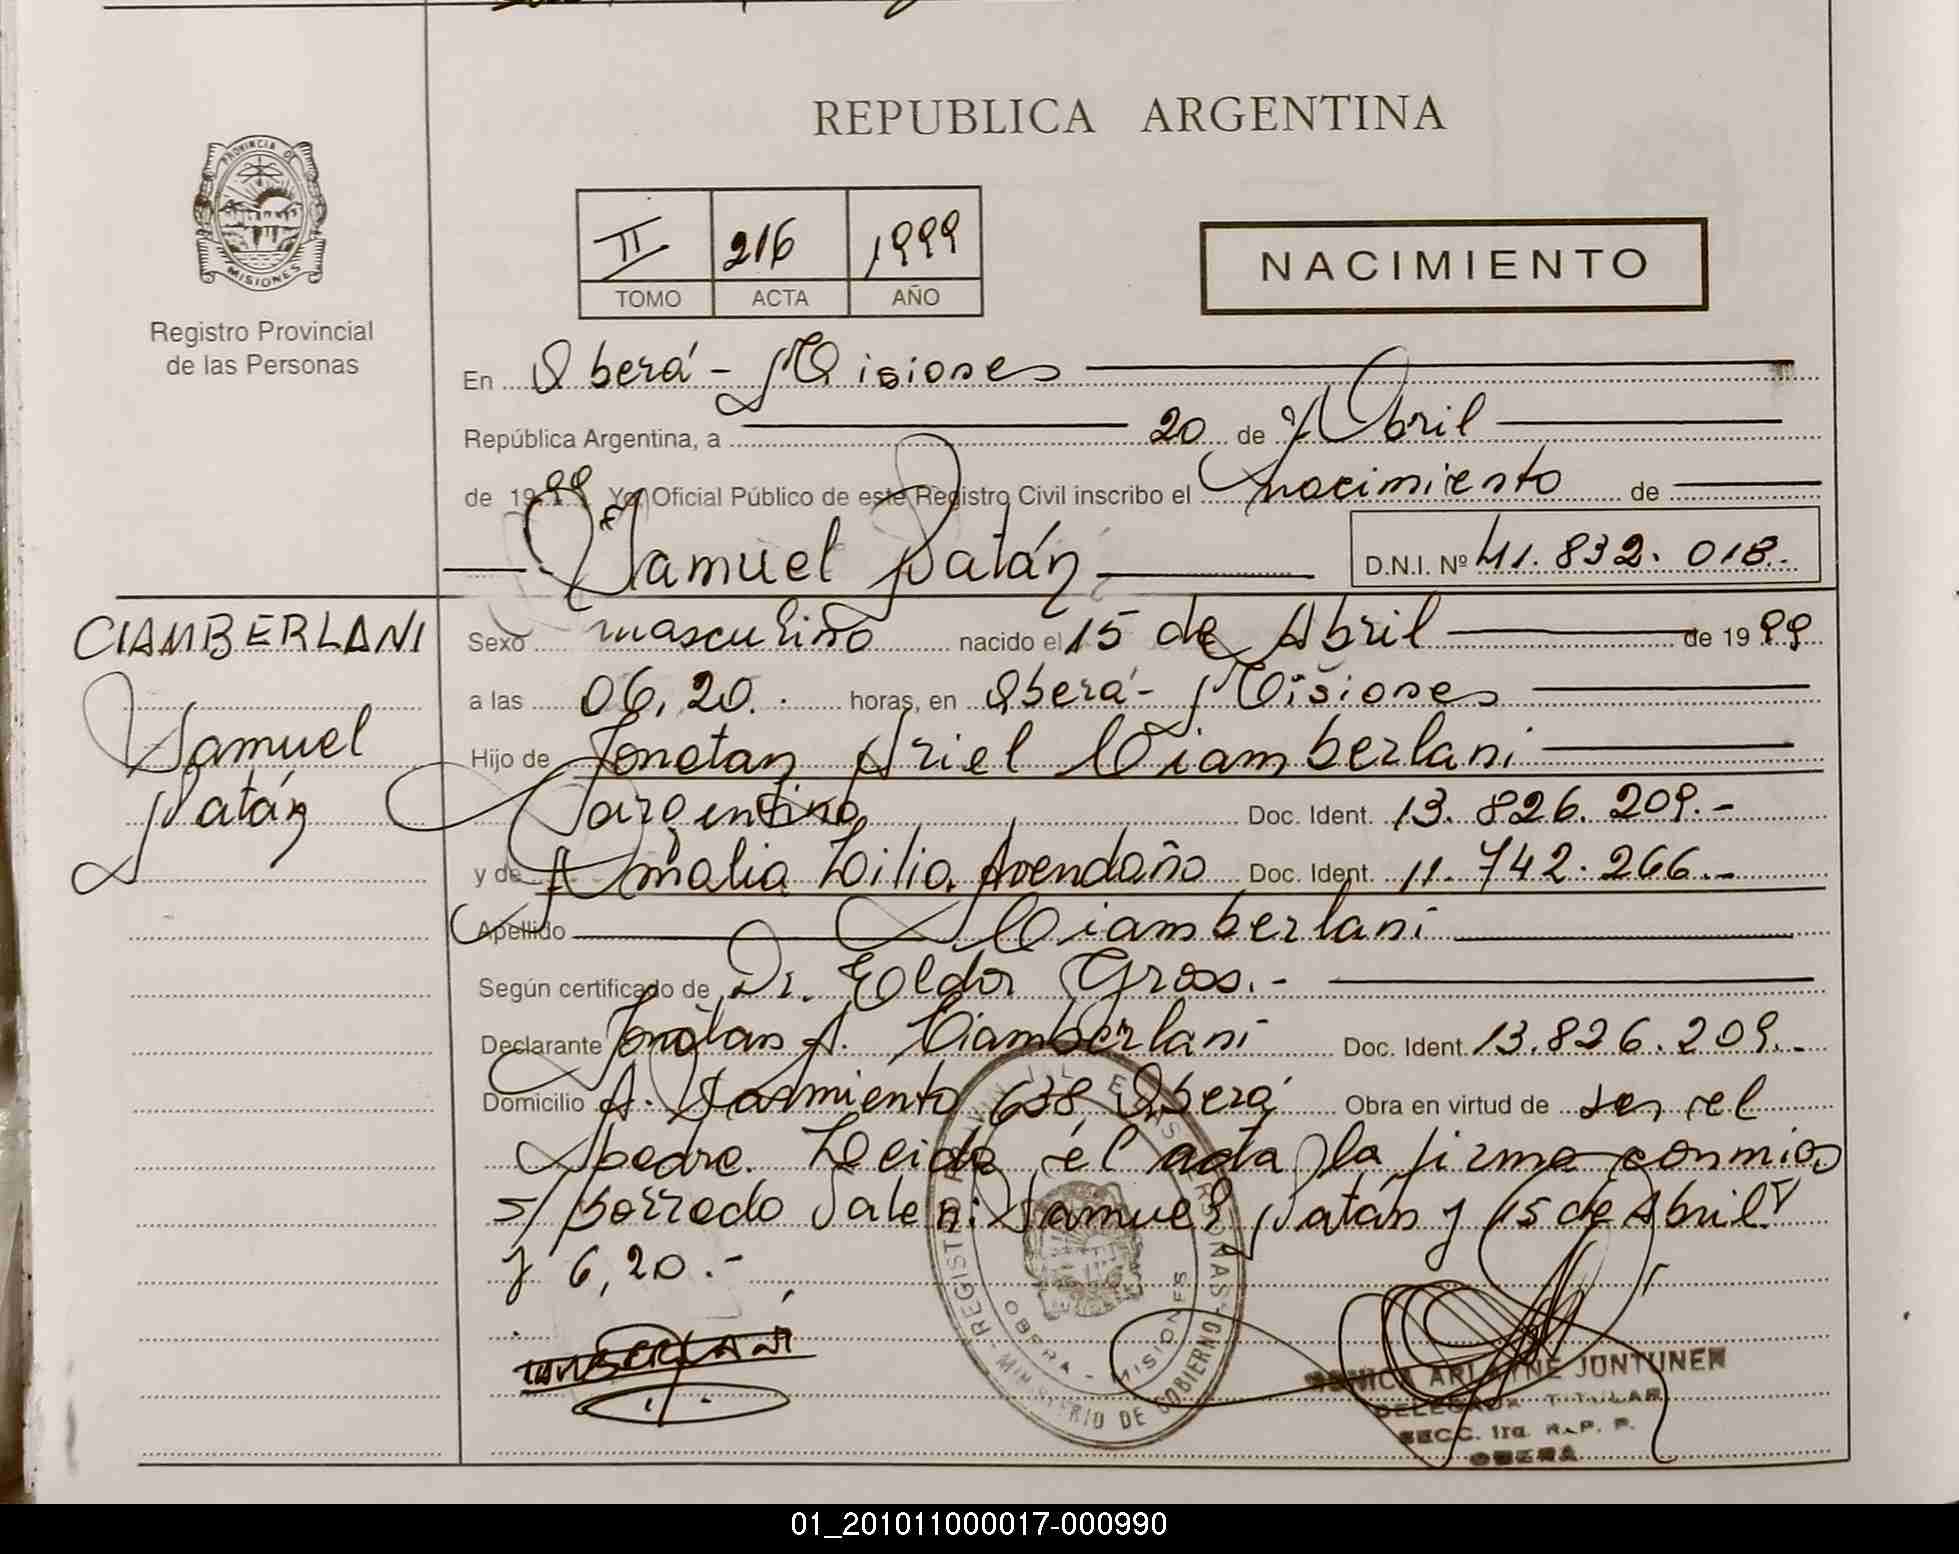 REPUBLICA ARGENTINA
PROVINCIA DE
MISIONES
Registro Provincial
de las Personas
II 216 1999
TOMO ACTA AÑO
NACIMIENTO
En Oberá - Misiones
República Argentina, a 20 de Abril
de 1999 Yo, Oficial Público de este Registro Civil inscribo el nacimiento de
Samuel Natán D.N.I. Nº 41.832.018.-
CIAMBERLANI
Samuel
Natán
Sexo masculino nacido el 15 de Abril de 1999
a las 06,20. horas, en Oberá - Misiones
Hijo de Jonatan Ariel Ciamberlani
argentino Doc. Ident. 13.826.209.-
y de Amalia Lilia Avendaño Doc. Ident. 11.742.266.-
Apellido Ciamberlani
Según certificado de Dr. Eldor Gross.-
Declarante Jonatan A. Ciamberlani Doc. Ident. 13.826.209.-
Domicilio A. Sarmiento 638 Oberá Obra en virtud de ser el
padre. Leida el acta la firma conmigo
s/ borrado Vale: Samuel Natán y 15 de Abril
y 6,20.-
CIAMBERLANI
REGISTRO PERSONAS
OBERA - MISIONES
MINISTERIO DE GOBIERNO
MONICA ARLAYNE JUNTUNEN
DELEGADA TITULAR
SECC. 1ra. R. P. P.
OBERA
01_201011000017-000990